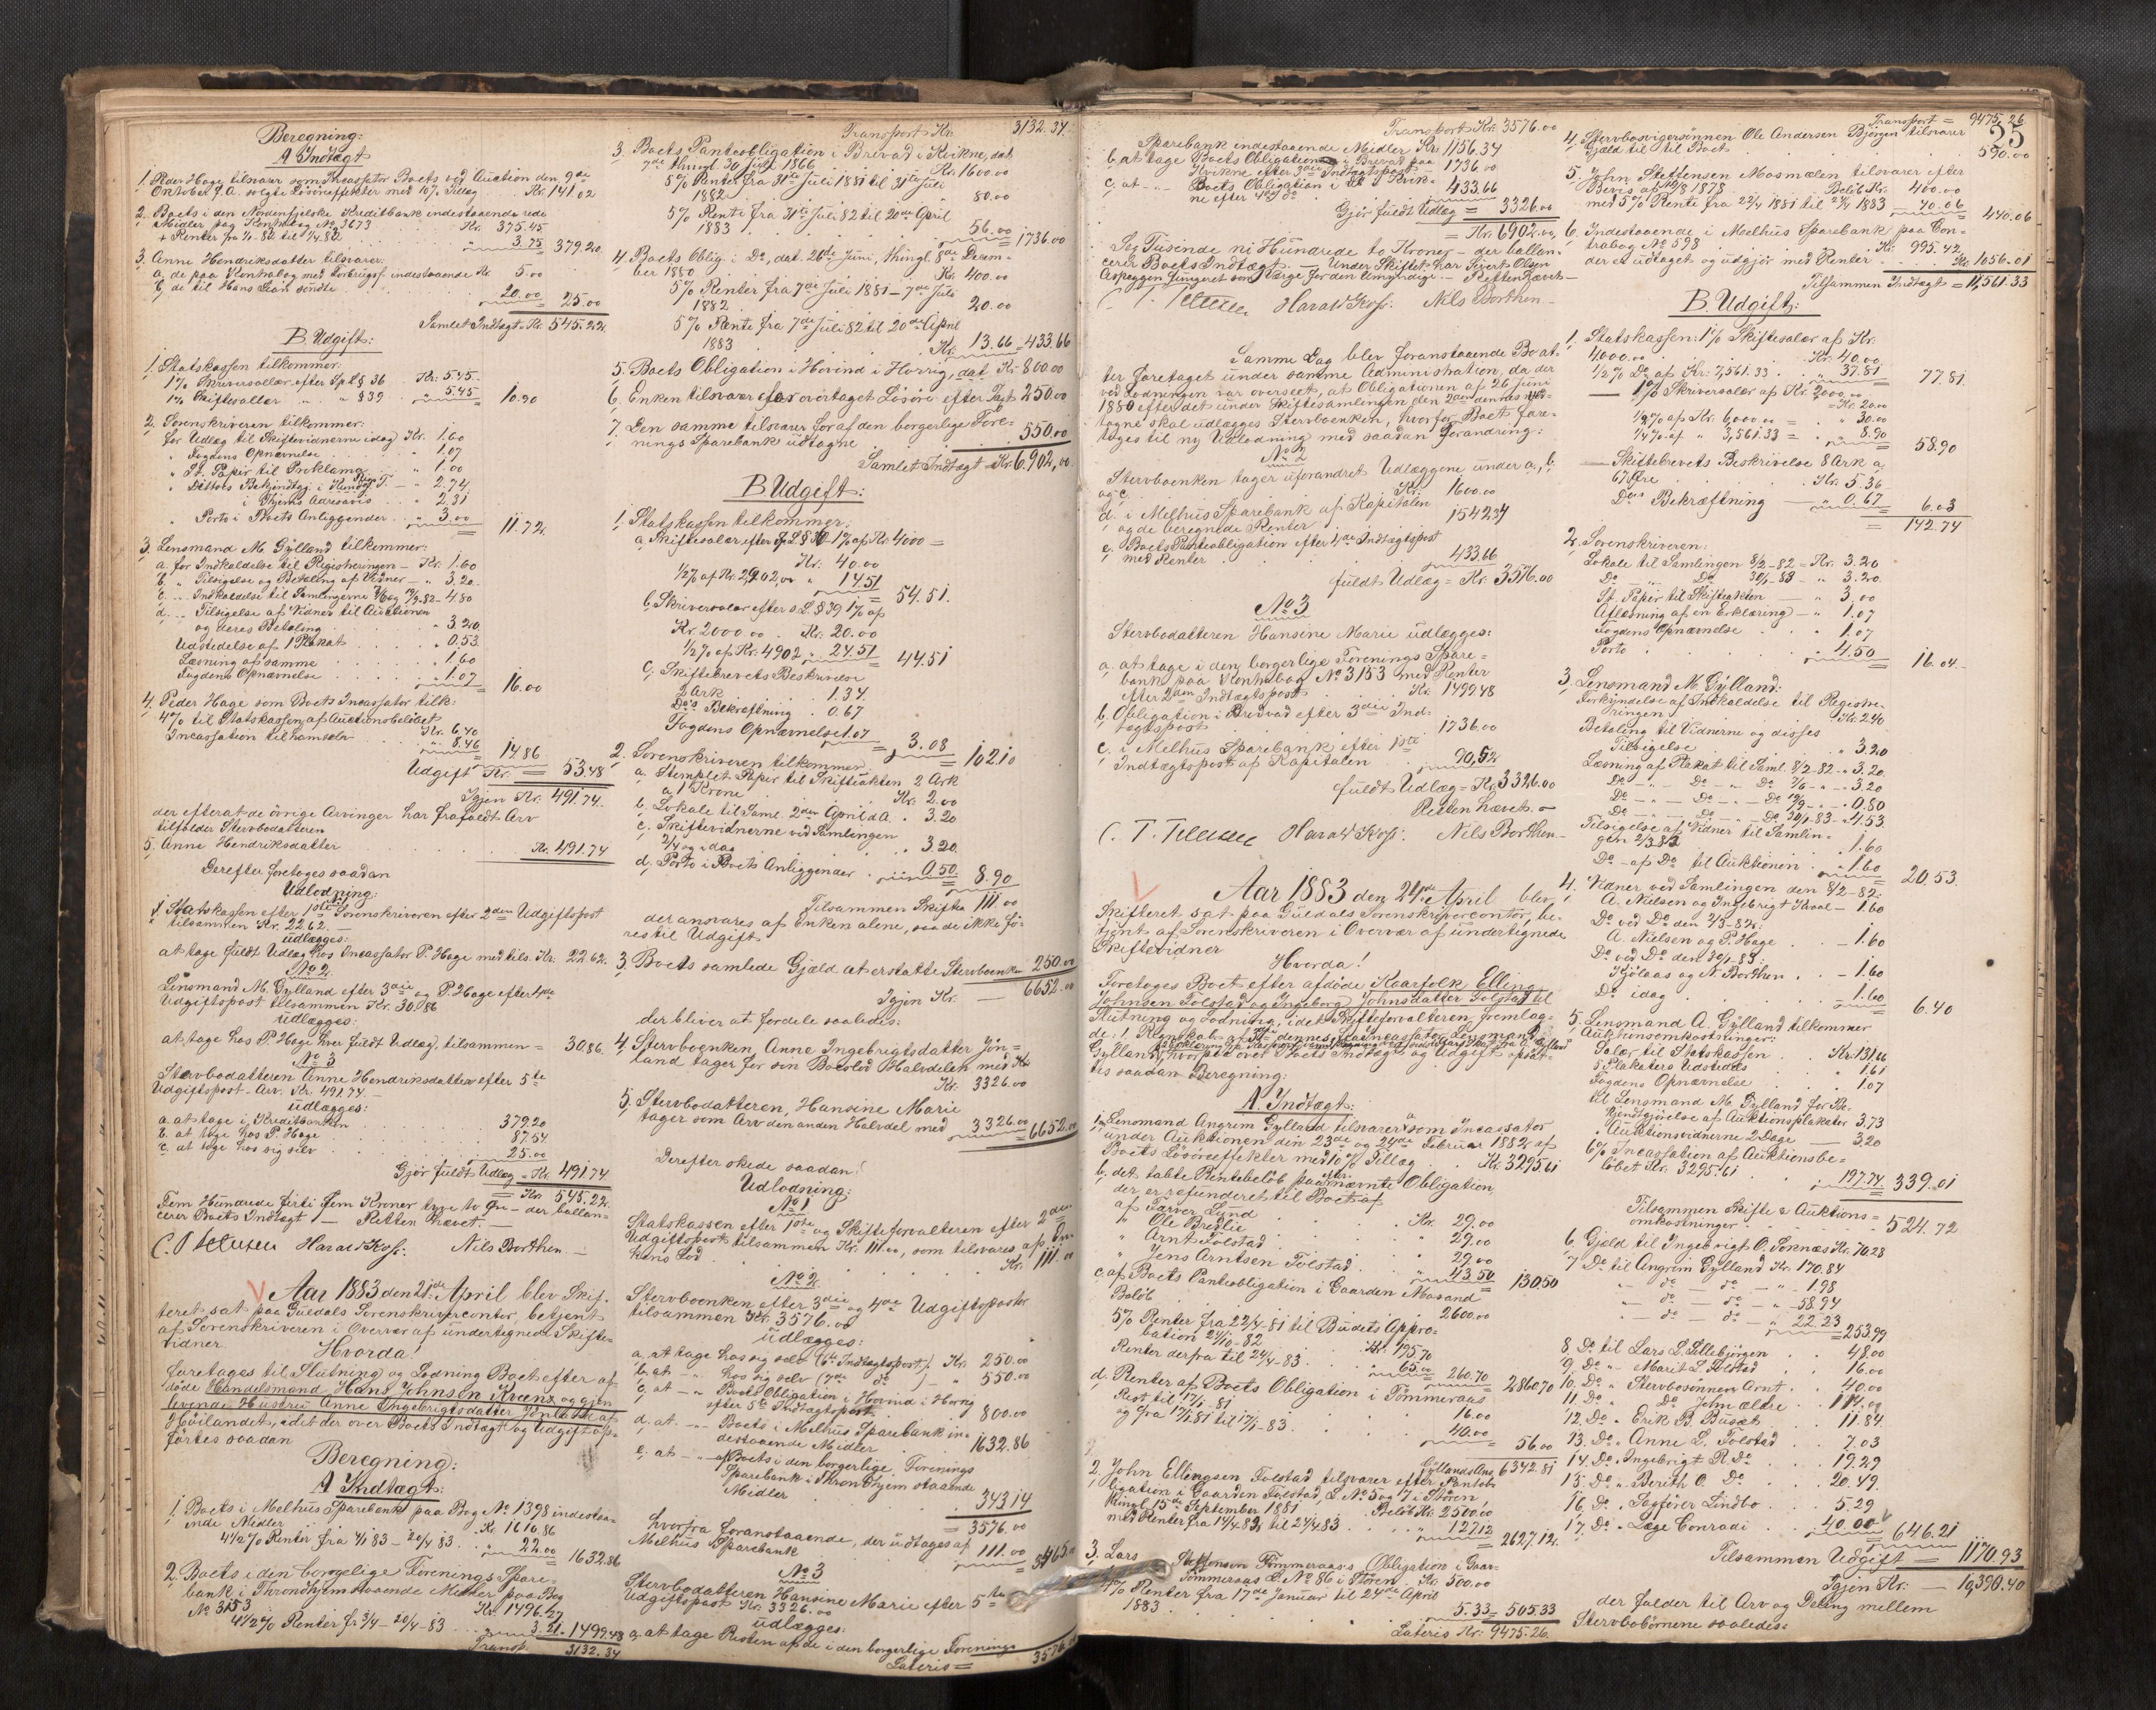 Beregning:
A Indtægt
1. Peder Hage tilsvarer som Incassator Boets ved Auction den 9de
Oktober f. A. solgte Løsøreeffekter med 10% Tillæg Kr. 141.02
2. Boets i den Nordenfjelske Kreditbank indestaaende rede
Midler paa Kontrabog No 3673 Kr. 375.45
+ Renter fra 1/1-82 til 1/4 82 " 3.75 379.20
3. Anne Hendriksdatter tilsvarer:
a. de paa Kontrabog med indestaaende Kr 5.00
b. de til Hans 20.00 = 25.00
Samlet Indtægt = Kr. 545.22
B. Udgift:
1. Statskassen tilkommer:
1% Skriversallær efter Spl § 36 Kr: 5.45
1% Skiftesallær " " § 39 " 5.45 = 10.90
2. Sorenskriveren tilkommer:
for Udlæg til Skiftevidnerne idag Kr. 1.60
" Fogdens Opnævnelse " 1.07
" St. Papir til Proklama " 1.00
" Dittos Bekjendtgj. i T. " 2.74
i Thjems Adresavis " 2.31
" Porto i Boets Anliggender " 3.00 = 11.72
3. Lensmand M. Gylland tilkommer:
a. for Indkaldelse til Registreringen Kr. 1.60
b. " Tilsigelse og Betaling af Vidner " 3.20
c. " Indkaldelse til Samlingerne 4.80
d. " Tilsigelse af Vidner til Auktionen
og deres Betaling " 3.20
Udstedelse af 1 Plakat " 0.53
Læsning af samme " 1.60
Fogdens Opnævnelse " 1.07 = 16.00
4. Peder Hage som Boets Incassator tilk:
4% til Statskassen af Auctionsbeløbet Kr. 6.40
Incassation til ham selv " 8.46 14.86
Udgift Kr. = 53.48
Igjen Kr. 491.74
der efterat de øvrige Arvinger har frafaldt Arv
tilfalder Stervbodatteren
5. Anne Hendriksdatter Kr. 491.74
Derefter foretoges saadan
Udlodning:
No 1
Statskassen efter 1ste og Sorenskriveren efter 2den Udgiftspost
tilsammen Kr. 22.62.
udlægges:
at tage fuldt Udlæg hos Incassator P. Hage med tils. Kr. 22.62
No 2
Lensmand M. Gylland efter 3die og P. Hage efter 4de
Udgiftspost tilsammen Kr. 30.86
udlægges:
at tage hos P. Hage hver fuldt Udlæg, tilsammen = 30.86
No 3
Stervbodatteren Anne Hendriksdatter efter 5te
Udgiftspost - Arv. Kr. 491.74
udlægges:
a. at tage i Kreditbanken 379.20
b. at tage hos P. Hage 87.54
c. at tage hos sig selv 25.00
Gjør fuldt Udlæg = Kr. 491.74
= Kr. 545.22.
Fem Hundrede førti fem Kroner tyve to Øre - der ballan-
cerer Boets Indtægt - Retten hævet.
Harald Koss. Nils Borthen
Aar 1883 den 21de April blev Skif-
teret sat paa Guldals Sorenskrivercontor, betjent
af Sorenskriveren i Overvær af undertegnede Skifte-
vidner. Hvorda!
foretages til Slutning og Lodning Boet efter af-
døde Handelsmand Hans Johnsen Moene og gjen-
levende Hustru Anne Ingebrigtsdatter
Høilandet, idet der over Boets Indtægt og Udgift op-
førtes saadan
Beregning:
A Indtægt:
1. Boets i Melhus Sparebank paa Bog No 1398 indestaa-
ende Midler Kr 1610.86
4 1/2% Renter fra 1/1 83 - 20/4 83 " 22.00 = 1632.86
2. Boets i den borgerlige Forenings Spare-
bank i Throndhjem staaende Midler paa Bog
No 3153 Kr. 1496.27
4 1/2% Renter fr. 3/4 - 20/4 - 83 3.21 = 1499.48
Transp. 3132.34
Transport Kr. 3132.34.
3. Boets Panteobligation i Brevad i Kvikne, dat
7de thingl. 30 Juli 1866 Kr. 1600.00
5% Renter fra 31te Juli 1881 til 31te Juli
1882 80.00
5% Rente fra 31te Juli 82 til 20de April
1883 56.00 = 1736.00
4. Boets Oblig. i Do, dat. 26de Juni, thingl. 8de Decem-
ber 1880 Kr. 400.00
5% Renter fra 7de Juli 1881 - 7de Juli
1882 20.00
5% Rente fra 7de Juli 82 til 20de April
1883 Kr. 13.66 = 433.66
5. Boets Obligation i Hovind i Horrig, dat. Kr. 800.00
6. Enken tilsvarer for overtaget Løsøre efter Taxt 250.00
7. Den samme tilsvarer for af den borgerlige Fore-
nings Sparebank udtagne 550.00
Samlet Indtægt = Kr. 6.902,00
B Udgift:
1. Statskassen tilkommer:
a. Skiftesalær efter Sp. L § 39 1% af Kr. 4000 =
Kr. 40.00
1/2% af Kr. 2,902,00 " 14.51 = 54.51
b. Skriversalær efter s. L. § 39 1% af
Kr. 2000.00 Kr. 20.00
1/2% af Kr. 4902 " 24.51 = 44.51
c. Skiftebrevets Beskrivelse
2 Ark 1.34
Dets Bekræftning 0.67
Fogdens Opnævnelse 1.07 = 3.08 = 102.10
2. Sorenskriveren tilkommer
a. Stemplet Papir til Skifteakten 2 Ark
a 1 Krone Kr. 2.00
b. Lokale til Saml. 2den April d A. 3.20
c. Skiftevidnerne ved Samlingen
2/4 og idag " 3.20
d. Porto i Boets Anliggender 0.50 = 8.90
Tilsammen Skifte 111.00
der ansvares af Enken alene, saa de ikke fø-
res til Udgift.
3. Boets samlede Gjæld at erstatte Stervboenken 250.00
Igjen Kr. - 6652.00
der bliver at fordele saaledes:
4. Stervboenken Anne Ingebrigtsdatter Jøn-
land tager for sin Boeslod Halvdelen med
Kr. 3326.00
5. Stervbodatteren, Hansine Marie
tager som Arv den anden Halvdel med 3326.00 = 6652.00
Derefter skede saadan
Udlodning:
No 1
Statskassen efter 1ste og Skifteforvalteren efter 2den
Udgiftspost tilsammen Kr. 111.00, som tilsvares af En-
kens Lod Kr. 111.00
No 2
Stervboenken efter 3die og 4de Udgiftsposter
tilsammen Kr. 3576.00
udlægges:
a. at tage hos sig selv (6te Indtægtspost) Kr. 250.00
b. at - " hos sig selv (7de do ) - " 550.00
c. at - " Boets Obligation i Hovind i Horrig
efter 5te Indtægtspost 800.00
d. at - " Boets i Melhus Sparebank in-
destaaende Midler 1632.86
e. at - " af Boets i den borgerlige Forenings
Sparebank i Throndhjem staaende
Midler 343.14
= 3576.00
hvorfra foranstaaende, der udtages af
Melhus Sparebank 111.00 = 3465.00
No 3
Stervbodatteren Hansine Marie efter 5te
Udgiftspost Kr. 3326.00
udlægges:
a. at tage Resten af de i den borgerlige Forenings
Lateris = 3576.00
Transport Kr. 3576.00
Sparebank indestaaende Midler Kr. 1156.34
b. at tage Boets Obligation i Brevad paa
Kvikne efter 3die Indtægtspost 1736.00
c. at - " Boets Obligation i Do i Kvik-
ne efter 4de do 433.66
Gjør fuldt Udlæg = 3326.00
= Kr. 6902.00
Sex Tusinde ni Hundrede to Kroner - der ballan-
cerer Boets Indtægt. - Under Skiftet har Sivert Olsen
Aspeggen fungeret som Værge for den Umyndige. - Retten hævet -
Harald Koss. Nils Borthen -
Samme Dag blev foranstaaende Bo at-
ter foretaget under samme Administration, da der
ved Lodningen var overseet, at Obligationen af 26 Juni
1880 efter det under Skiftesamlingen den 2den dennes ved-
tagne skal udlægges Stervboenken, hvorfor Boet fore-
tages til ny Udlodning med saadan Forandring:
No 2
Stervboenken tager uforandret Udlæggene under a, b,
og c. Kr. 1600.00
d. i Melhus Sparebank af Kapitalen
og de beregnede Renter 1542.34
e. Boets Panteobligation efter 4de Indtægtspost
med Renter 433.66
fuldt Udlæg = Kr. 3576.00
No 3
Stervbodatteren Hansine Marie udlægges:
a. at tage i den borgerlige Forenings Spare-
bank paa Kontrabog No 3153 med Renter
efter 2den Indtægtspost Kr. 1499.48
b. Obligation i Bredvad efter 3die Ind-
tægtspost 1736.00
c. i Melhus Sparebank efter 1ste
Indtægtspost af Kapitalen 90,52
fuldt Udlæg = Kr. 3326.00
Retten hævet -
Harald Koss. Nils Borthen -
Aar 1883 den 24de April blev
Skifteret sat paa Guldals Sorenskrivercontor, be-
tjent af Sorenskriveren i Overvær af undertegnede
Skiftevidner
Hvorda!
Foretoges Boet efter afdøde Kaarfolk Elling
Johnsen Folstad og Ingeborg Johnsdatter Folstad til
Slutning og Lodning, idet Skifteforvalteren fremlag-
de: 1 Regnskab af dennes fra Incassator Lensmand
Gylland, hvorpaa over Boets Indtægt og Udgift opsat-
tes saadan Beregning:
A. Indtægt:
1. a. Lensmand Angrim Gylland tilsvarer som Incassator
under Auktionen den 23de og 24de Februar 1882 af
Boets Løsøreeffekter med 10% Tillæg Kr. 3295.61
b. det tabte Rentebeløb paa nævnte Obligation,
der er refunderet til Boet af
af Farver Lund Kr. 29.00
" Ole Bredlie " 29.00
" Arnt Folstad " 29.00
" Jens Arntsen Folstad " 43.50 = 130.50
c. af Boets Panteobligation i Gaarden Mosand
Beløb 2600.00
5% Renter fra 22/4-81 til Budets Appro-
bation 24/10-82 Kr. 195.70
Renter derfra til 24/4-83 " 65.00 = 260.70 2860.70
d. Renter af Boets Obligation i Tømmeraas
Rest til 17/1-81 16.00
og fra 17/1 81 til 17/1-83 40.00 = 56.00
Gyllands Ans. 6342.81
2. John Ellingsen Folstad tilsvarer efter Panteob-
ligation i Gaarden Folstad, L. No 5 og 7 i Støren,
thingl. 15de September 1881 Beløb Kr. 2500.00
med Renter fra 14/4 82 til 24/4 83 " 127.12 = 2627.12
3. Lars Steffensen Tømmeraas's Obligation i Gaar-
Tømmeraas L. No 86 i Støren Kr. 500.00
4% Renter fra 17de Januar til 24de April
1883 5.33 = 505.33
Lateris Kr. 9475.26.
Transport = 9475.26
25
4. Stervbosvigersønnen Ole Andersen Bjørgen tilsvarer
Gjæld til Boet 590.00
5. John Steffensen Mosmælen tilsvarer efter
Bevis af 1878 Beløb Kr. 400.00
med 5% Rente fra 22/4 1881 til 24/4 1883 - 40.06 = 440.06
6. Indestaaende i Melhus Sparebank paa Con-
trabog No 598 Kr. 995.42
der er udtaget og udgjør med Renter Kr. 1056.01
Tilsammen Indtægt = 11,561.33
B. Udgift:
1. Statskassen: 1% Skiftesalær af Kr.
4000.00 Kr. 40.00
1/2% Do af Kr. 7,561.33 " 37.81 77.81
1% Skriversalær af Kr. 2000.00
= Kr. 20.00
1/2% af Kr. 6,000.00 = " 30.00
1/4% af " 3,561.33 = " 8.90 58.90
Skiftebrevets Beskrivelse 8 Ark a
67 Øre Kr. 5.36
Dets Bekræftning " 0.67 6.03
= 142.74
2. Sorenskriveren:
Lokale til Samlingen 8/2-82 = Kr. 3.20
Do - " - Do 30/1-83 - " 3.20
St. Papir til Skifteakten " 3.00
Atlæsning af en Erklæring " 1.07
Fogdens Opnævnelse " 1.07
Porto " 4.50 = 16.04
3. Lensmand M. Gylland:
Forkyndelse af Indkaldelse til Registre-
ringen Kr. 2.40
Betaling til Vidnerne og disses
Tilsigelse " 3.20
Læsning af Plakat til Saml. 8/2-82 - " 3.20
Do - " - Do - " - Do " - 3.20
Do - " - Do - " - Do " - 0.80
Do - " - Do 30/1-83 - 4.53
Tilsigelse af Vidner til Samlin-
gen 2/3 82 " 1.60
Do af Do til Auktionen " 1.60 = 20.53
4. Vidner ved Samlingen den 8/2-82:
A. Nielsen og Ingebrigt Kvaal - 1.60
Do ved Do den 2/3-82:
A. Nielsen og P. Hage - 1.60
Do ved Do den 30/1-83:
Kjølaas og N. Borthen - 1.60
Do idag 1.60 = 6.40
5. Lensmand A. Gylland tilkommer
Auktionsomkostninger:
Salær til Statskassen Kr. 131.66
5 Plakaters Udstedels 1.61
Fogdens Opnævnelse 1.07
til Lensmand M. Gylland for Be-
kjendtgjørelse af Auktionsplakater 3.73
" Auktionsvidnerne 2 Dage 3.20
6% Incassation af Auktionsbe-
løbet Kr. 3295.61 197.74 = 339.01
Tilsammen Skifte & Auktions-
omkostninger = 524.72
6. Gjæld til Ingebrigt O. Soknæs Kr. 70.28
7. Do til Angrim Gylland Kr. 170.84
- " - do - do - " 1.98
- " - do - do - " 58.94
- " - do - do - " 22.23 = 253.99
8. Do til Lars L. Lillebjørgen 48.00
9. Do " Marit L. Folstad 16.00
10. Do " Stervbosønnen Arnt 40.00
11. Do " Do John ældre 114.00
12. Do " Erik B. Busæt 11.84
13. Do " Anne L. Folstad 7.03
14. Do " Ingebrigt R. Do 19.29
15. Do " Berith O. Do 20.49
16. Do " Sagfører Lindbo 5.29
17. Do " Læge Conradi 40.00 = 646.21
Tilsammen Udgift = 1170.93
Igjen Kr. - 10,390.40
der falder til Arv og Deling mellem
Stervbobørnene saaledes: